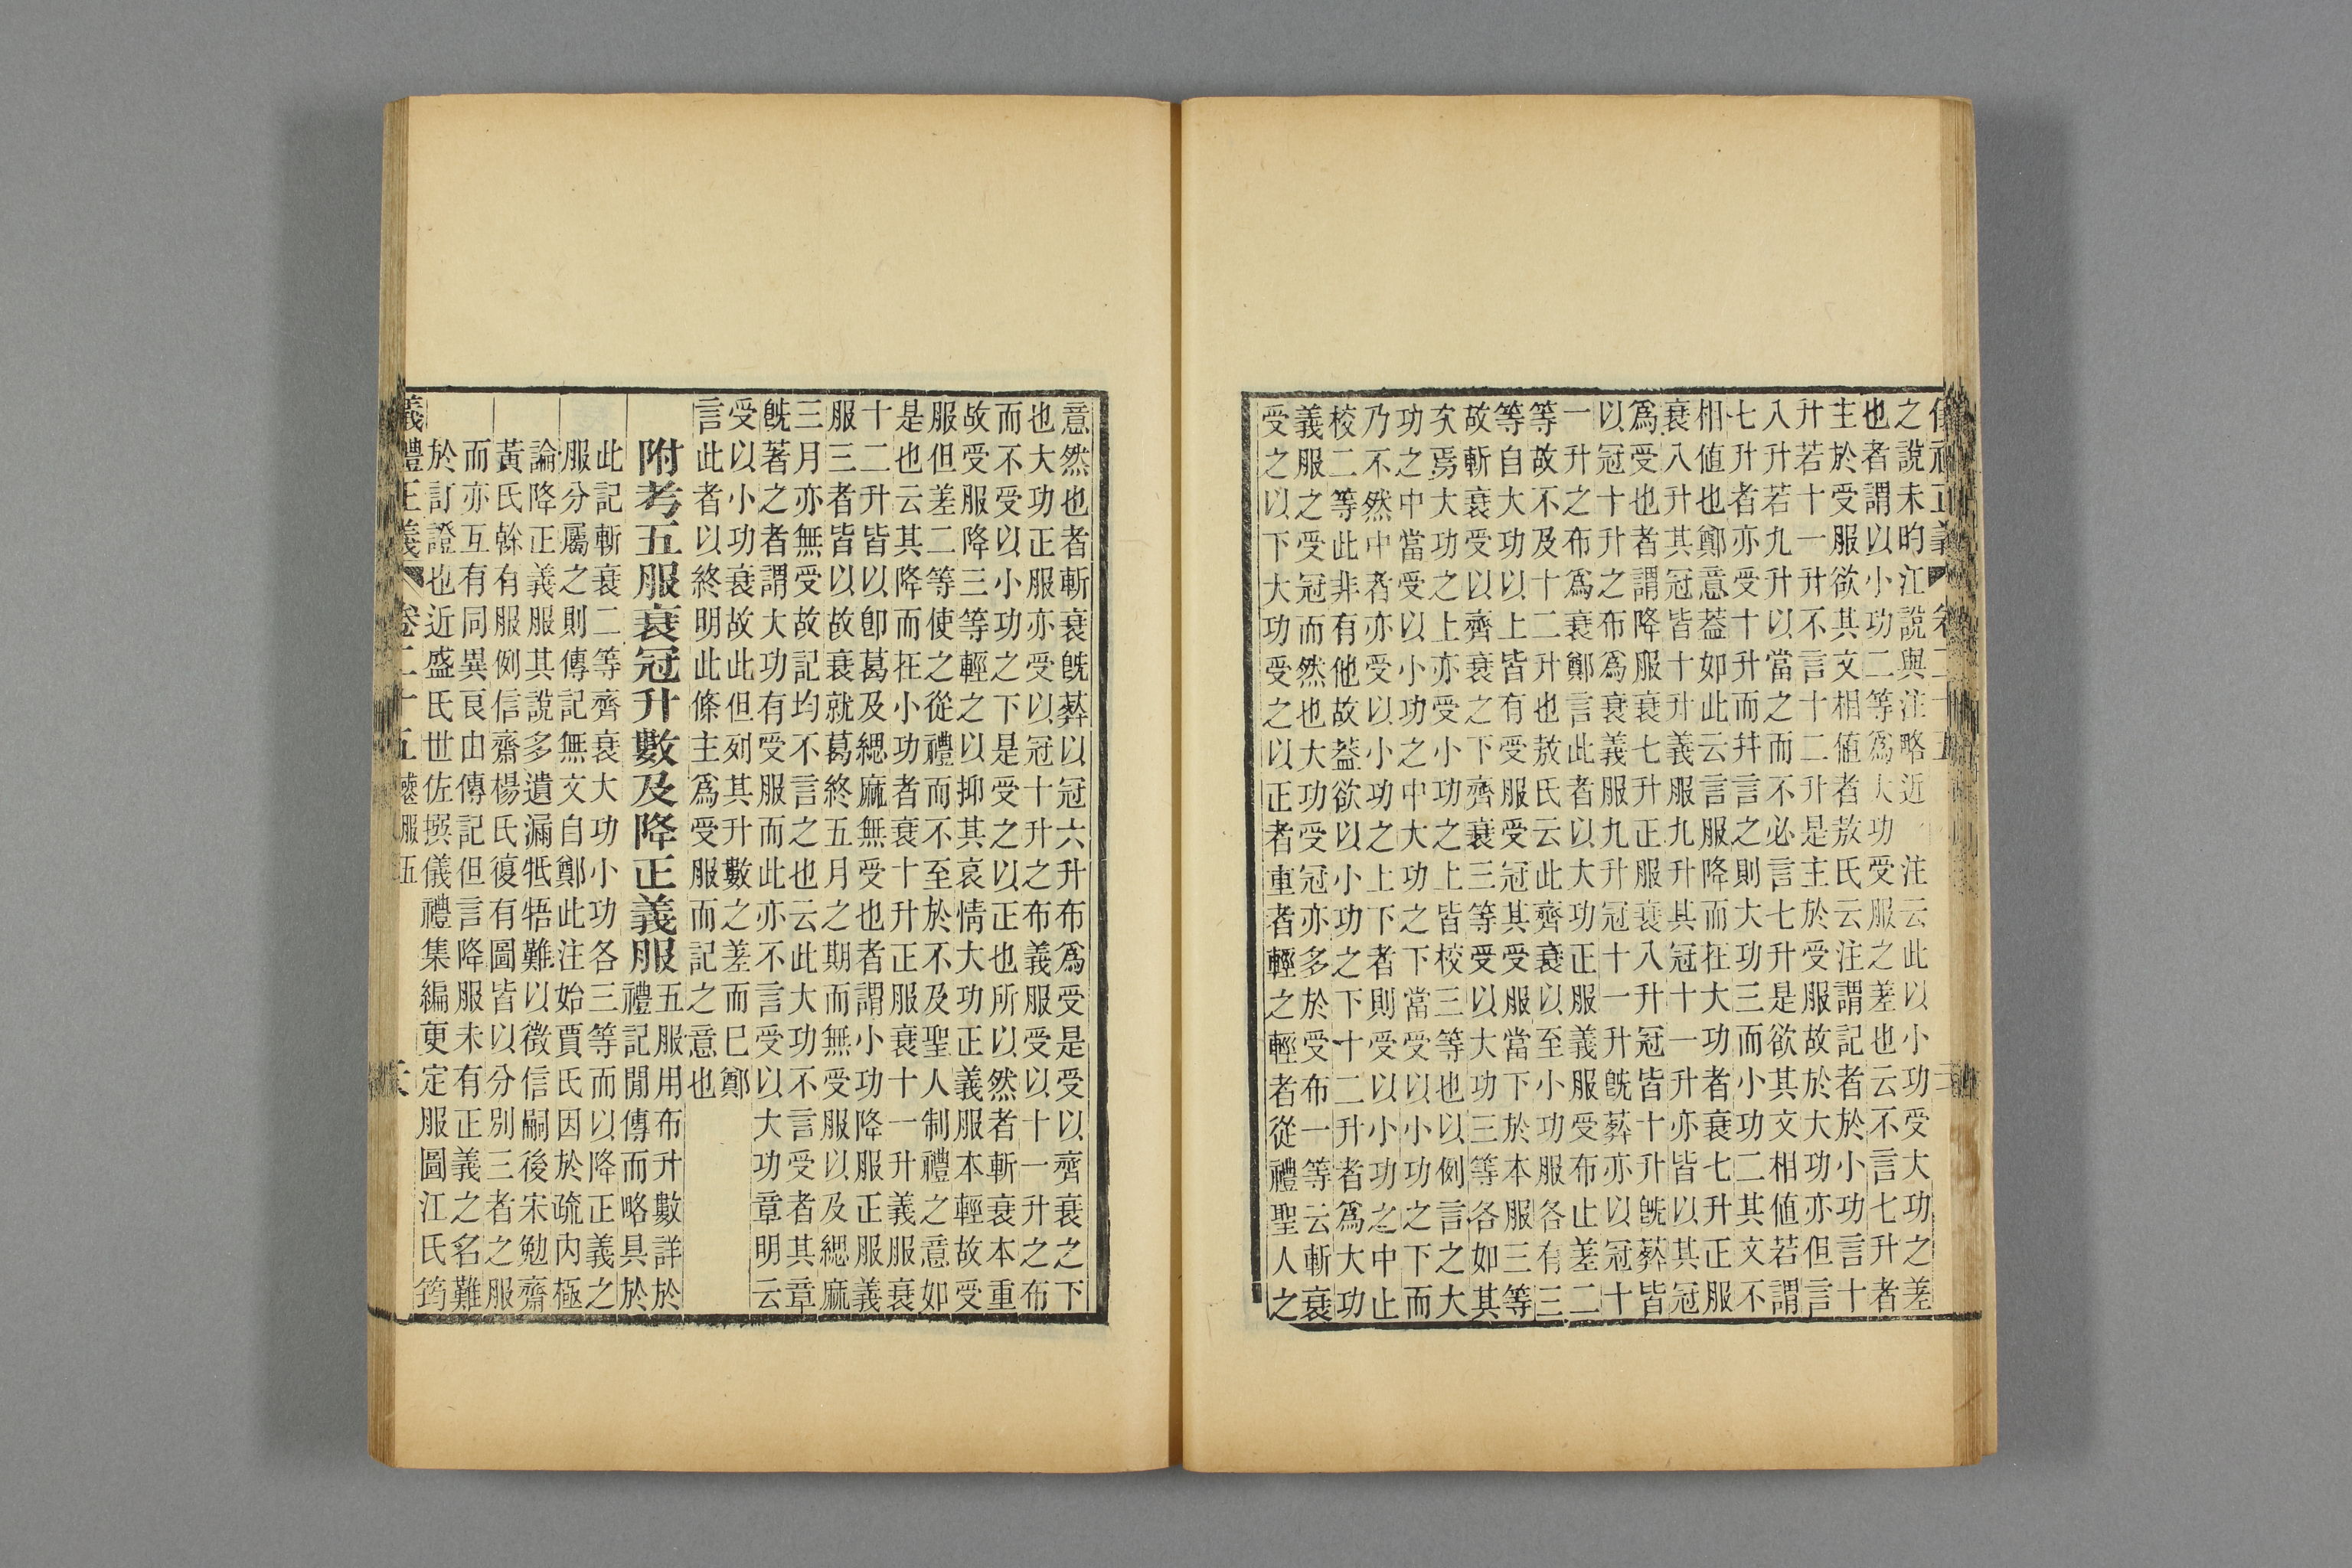 之說未昀江說與注略近　注云此以小功受大功之差
也者謂以小功二等爲大功受服之差也云不言七升者
主於受服欲其文相値者敖氏云注謂記者於小功言十
升若十一升不言十二升是主於受服故於大功亦但言
八升若九升以當之而不必言七升是欲其文相値若謂
七升者亦受十升而幷言之則大功三而小功二其文不
相値也鄭意葢如此云言服降而在大功者衰七升正服
衰八升其冠皆十升義服九升其冠十一升亦皆以其冠
爲受也者謂降服衰七升正服衰八升冠皆十升旣葬皆
以冠十升之布爲衰義服九升冠十一升旣葬亦以冠十
一升之布爲衰鄭言此者以大功正服義服受布止差二
等故不及十二升也敖氏云此齊衰以至小功服各有三
等自大功以上皆有受服受冠其受服當下於本服三等
故斬衰受以齊衰之下齊衰三等受以大功三等各如其
次焉大功之上亦受小功之上皆校三等也以例言之大
功之中當受以小功之中大功之下當受以小功之下而
乃不然中者亦受以小功之上下者則受以小功之中止
校二等此非有他故葢欲以小功之下十二升者爲大功
義服之受冠而然也大功受冠亦多於受布一等云斬衰
受之以下大功受之以正者重者輕之輕者從禮聖人之
意然也者斬衰旣葬以冠六升布爲受是受以齊衰之下
也大功正服亦受以冠十升之布義服受以十一升之布
而不受以小功之下是受之以正也所以然者斬衰本重
故受服降三等輕之以抑其哀情大功正義服本輕故受
服但差二等使之從禮而不至於不及聖人制禮之意如
是也云其降而在小功者衰十升正服衰十一升義服衰
十二升皆以卽葛及緦麻無受也者謂小功降服正服義
服三者皆以故衰就葛終五月之期而無受服以及緦麻
三月亦無受故記均不言之也云此大功不言受者其章
旣著之者謂大功有受服而此亦不言受以大功章明云
受以小功衰故此但列其升數之差而已鄭
言此者以終明此條主爲受服而記之意也
附考五服衰冠升數及降正義服
五服用布升數詳於
禮記閒傳而略具於
此記斬衰二等齊衰大功小功各三等而以降正義之
服分屬之則傳記無文自鄭此注始賈氏因於疏內極
論降正義服其說多遺漏牴牾難以徵信嗣後宋勉齋
黃氏榦有服例信齋楊氏復有圖皆以分別三者之服
而亦互有同異良由傳記但言降服未有正義之名難
於訂證也近盛氏世佐撰儀禮集編更定服圖江氏筠
儀禮正義　卷二十五　喪服五